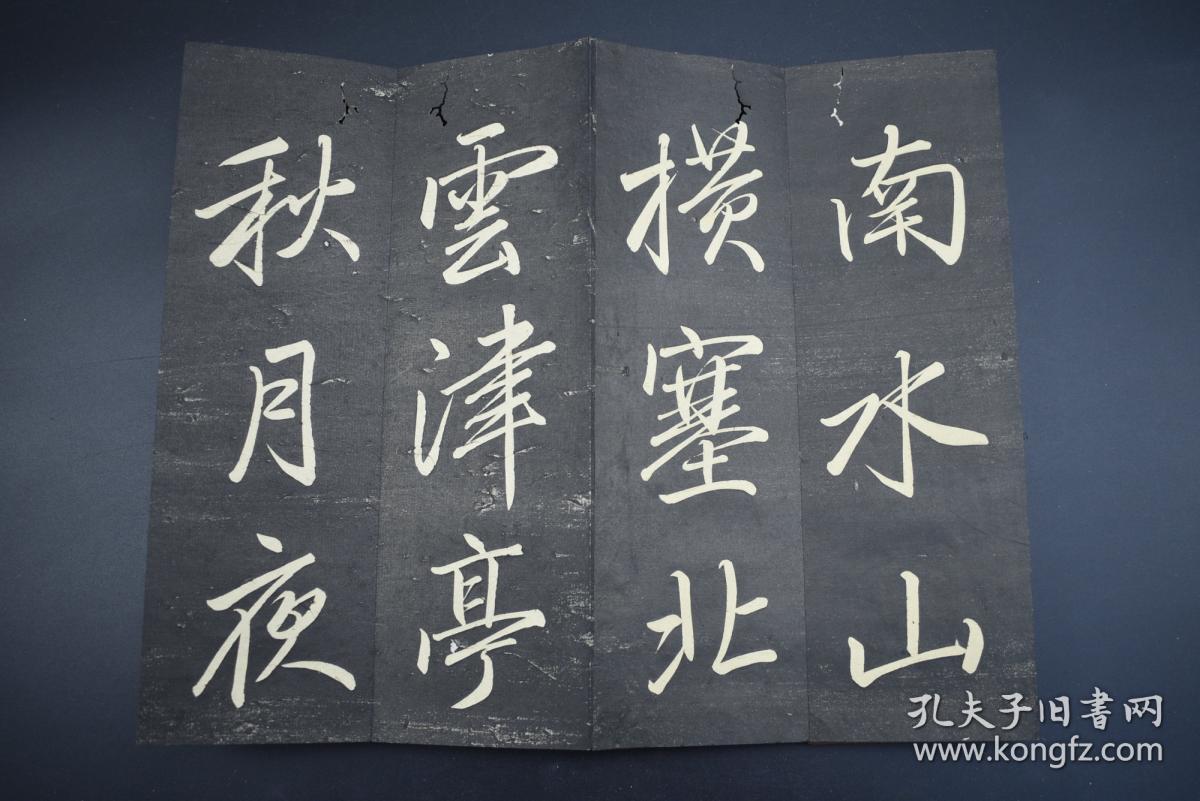 南水山
橫塞北
雲津亭
秋月夜
孔夫子旧書网
www.kongfz.com